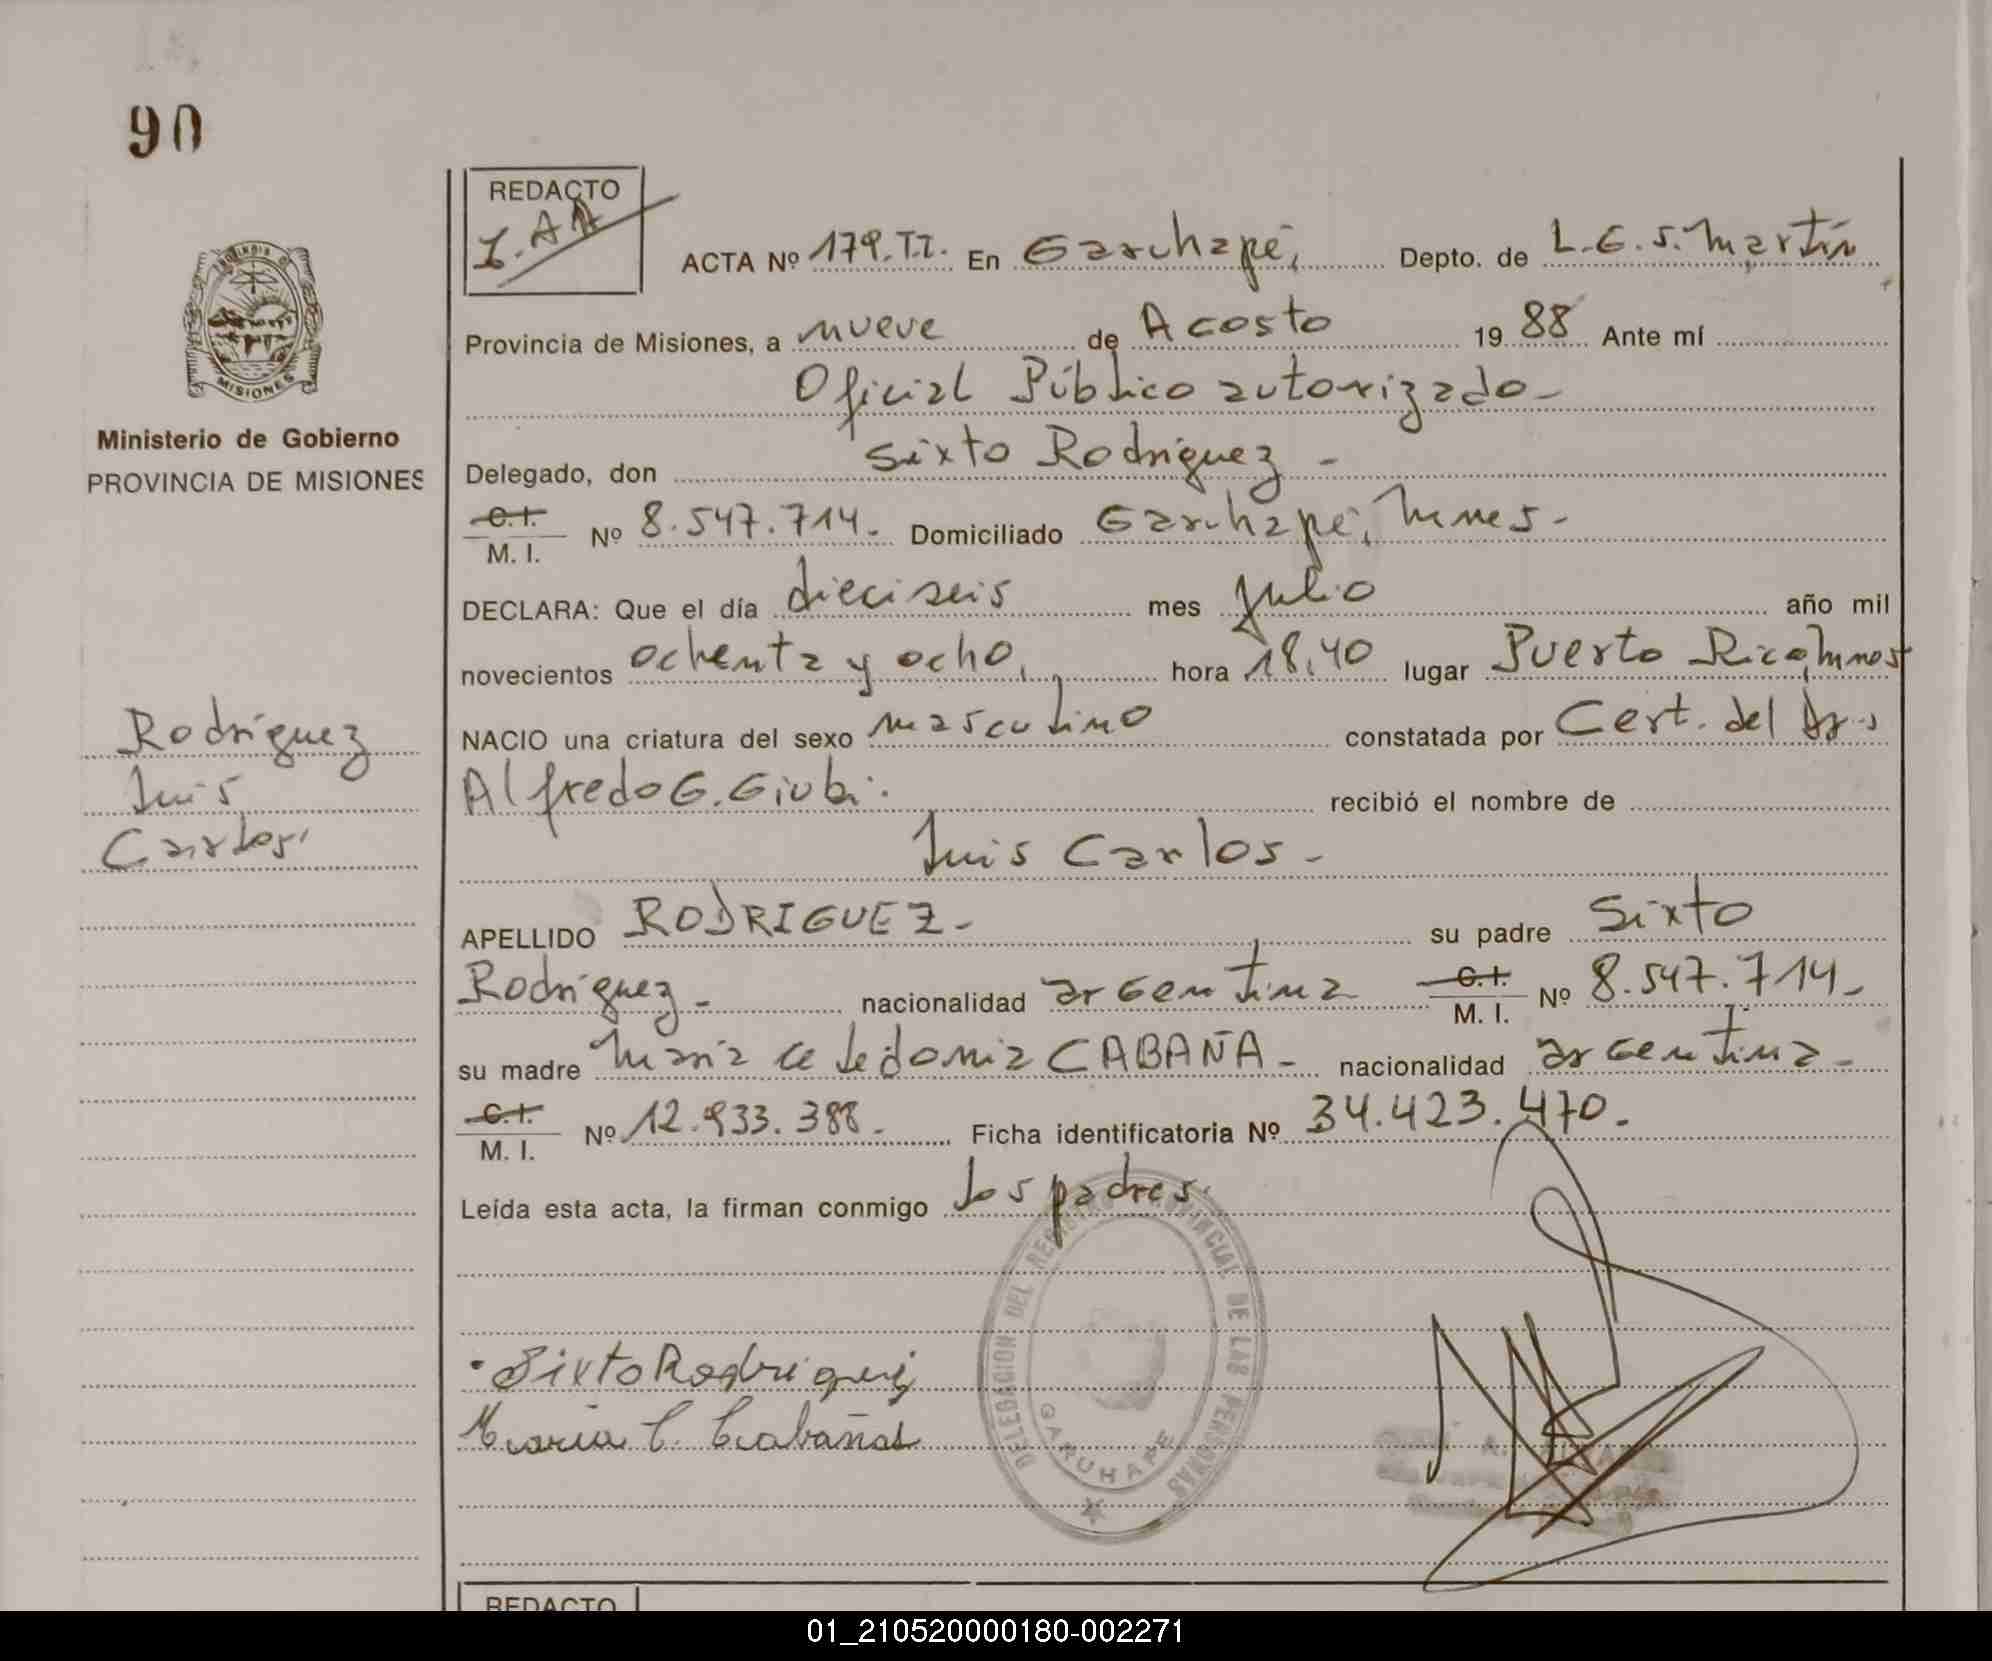 90
REDACTO
I.AA
ACTA Nº 179.T.I. En Garuhapé, Depto. de L.G.S. Martín
Provincia de Misiones, a nueve de Agosto 1988 Ante mí
Oficial Público autorizado-
MISIONES
Ministerio de Gobierno
PROVINCIA DE MISIONES
Delegado, don Sixto Rodríguez -
C.I.
M. I. Nº 8.547.714. Domiciliado Garuhapé, Mnes.-
DECLARA: Que el día dieciseis mes Julio año mil
novecientos ochenta y ocho, hora 18,40 lugar Puerto Rico, Mnes
NACIO una criatura del sexo masculino constatada por Cert. del Dr.
Alfredo G. Giubi. recibió el nombre de
Luis Carlos.-
Rodríguez
Luis
Carlos.
APELLIDO RODRIGUEZ.- su padre Sixto
Rodríguez.- nacionalidad argentina C.I.
M. I. Nº 8.547.714.-
su madre María Celedonia CABAÑA.- nacionalidad argentina.-
C.I.
M. I. Nº 12.933.388.- Ficha identificatoria Nº 34.423.470.-
Leída esta acta, la firman conmigo los padres.
DELEGACION DEL REGISTRO PROVINCIAL DE LAS PERSONAS
GARUHAPE
Sixto Rodriguez
Maria C. Cabañas
REDACTO
01_210520000180-002271